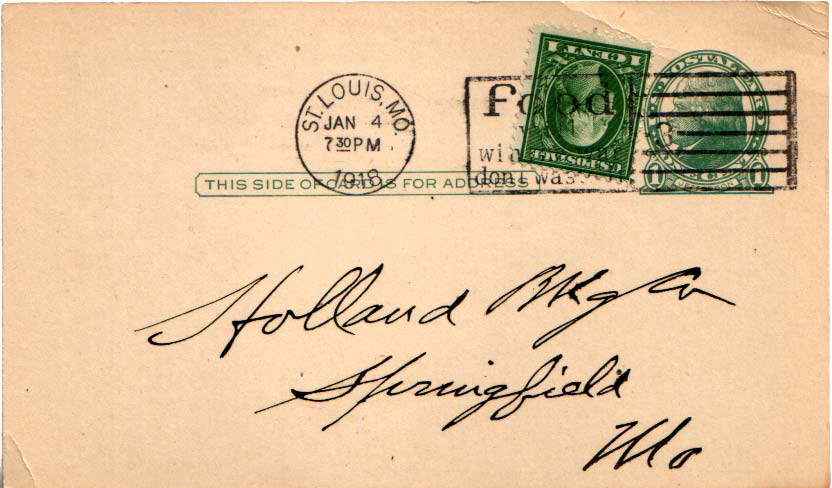 1 CENT 1
U.S. POSTAGE
POSTAL CARD
1 ONE CENT 1
JEFFERSON
ST. LOUIS, MO.
JAN 4
7 30 PM
1918
food
win
don't was
THIS SIDE OF CARD IS FOR ADDRESS
Holland Bkg Co
Springfield
Mo